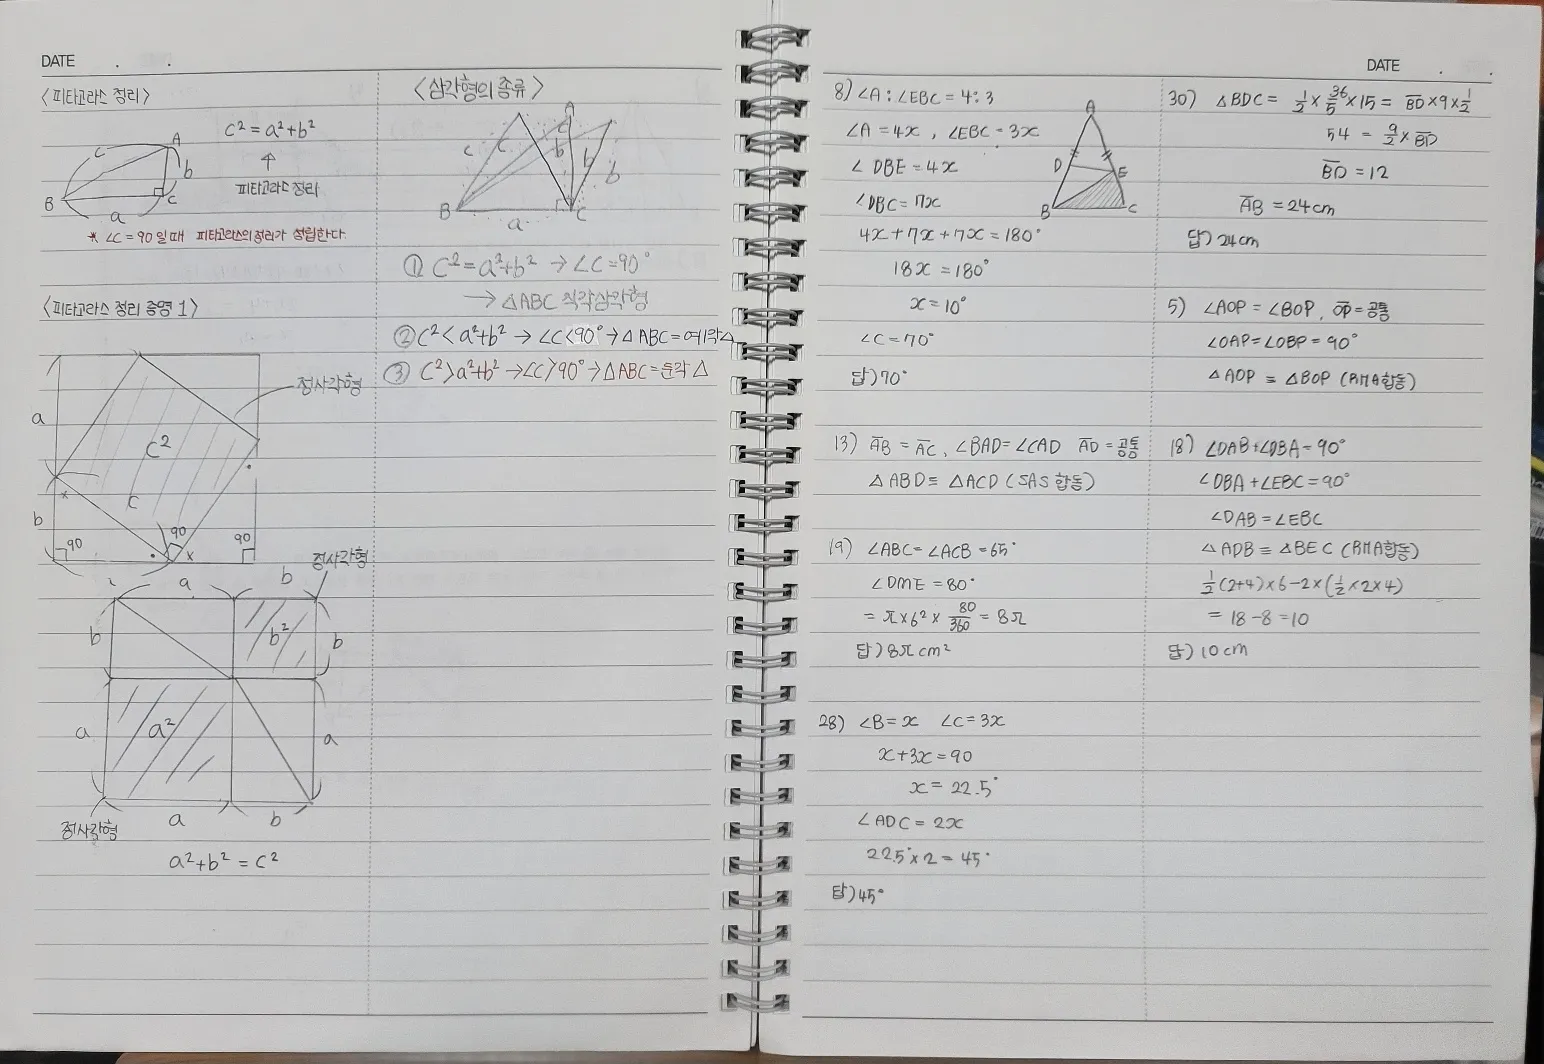 DATE . .
<피타고라스 정리>
c² = a²+b²
↑
피타고라스 정리
A
c
b
B
a
C
* ∠C = 90 일 때 피타고라스의 정리가 성립한다.
<피타고라스 정리 증명 1>
정사각형
a
c²
c
x
b
90
90
90
x
정사각형
a
b
b
b²
b
a
a²
a
정사각형
a
b
a²+b² = c²
<삼각형의 종류>
A
c
c
c
b
b
b
B
C
a
① C² = a²+b² → ∠C = 90°
→ △ABC 직각삼각형
② C² < a²+b² → ∠C < 90° → △ABC = 예각△
③ C² > a²+b² → ∠C > 90° → △ABC = 둔각△
DATE . .
8) ∠A : ∠EBC = 4 : 3
∠A = 4x , ∠EBC = 3x
∠DBE = 4x
∠DBC = 7x
4x + 7x + 7x = 180°
18x = 180°
x = 10°
∠C = 70°
답) 70°
A
D
E
B
C
13) AB = AC, ∠BAD = ∠CAD AD = 공통
△ABD ≡ △ACD (SAS 합동)
19) ∠ABC = ∠ACB = 65°
∠DME = 80°
= π×6² × 80/360 = 8π
답) 8π cm²
28) ∠B = x ∠C = 3x
x + 3x = 90
x = 22.5°
∠ADC = 2x
22.5° × 2 = 45°
답) 45°
30) △BDC = 1/2 × 36/5 × 15 = BD × 9 × 1/2
54 = 9/2 × BD
BD = 12
AB = 24cm
답) 24cm
5) ∠AOP = ∠BOP, OP = 공통
∠OAP = ∠OBP = 90°
△AOP ≡ △BOP (RHA합동)
18) ∠DAB + ∠DBA = 90°
∠DBA + ∠EBC = 90°
∠DAB = ∠EBC
△ADB ≡ △BEC (RHA합동)
1/2(2+4)×6 - 2×(1/2×2×4)
= 18 - 8 = 10
답) 10cm